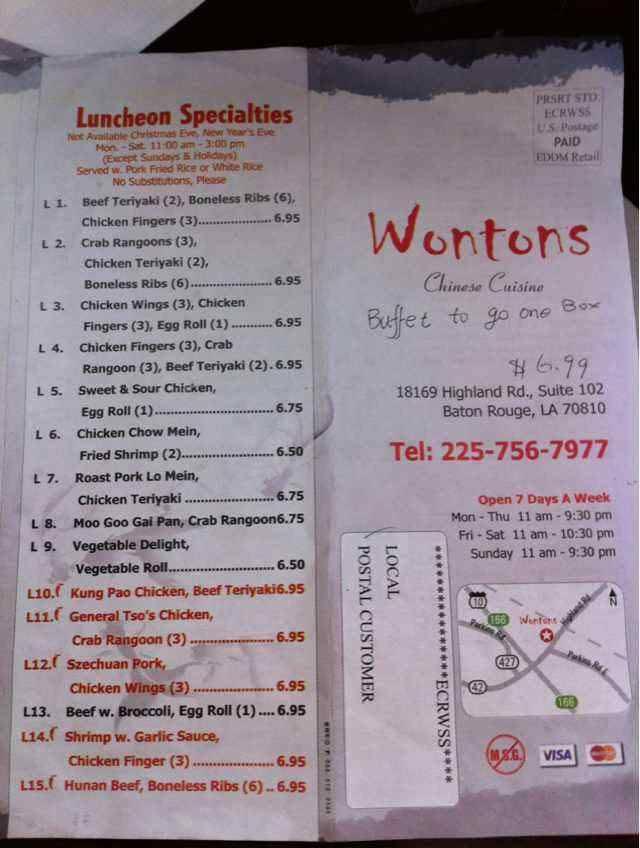 Luncheon Specialties
Not Available Christmas Eve, New Year's Eve
Mon. - Sat. 11:00 am - 3:00 pm
(Except Sundays & Holidays)
Served w. Pork Fried Rice or White Rice
No Substitutions, Please
L 1. Beef Teriyaki (2), Boneless Ribs (6),
Chicken Fingers (3)..................... 6.95
L 2. Crab Rangoons (3),
Chicken Teriyaki (2),
Boneless Ribs (6)........................ 6.95
L 3. Chicken Wings (3), Chicken
Fingers (3), Egg Roll (1) ............ 6.95
L 4. Chicken Fingers (3), Crab
Rangoon (3), Beef Teriyaki (2). 6.95
L 5. Sweet & Sour Chicken,
Egg Roll (1)................................ 6.75
L 6. Chicken Chow Mein,
Fried Shrimp (2)......................... 6.50
L 7. Roast Pork Lo Mein,
Chicken Teriyaki ........................ 6.75
L 8. Moo Goo Gai Pan, Crab Rangoon6.75
L 9. Vegetable Delight,
Vegetable Roll............................ 6.50
L10. Kung Pao Chicken, Beef Teriyaki6.95
L11. General Tso's Chicken,
Crab Rangoon (3) ...................... 6.95
L12. Szechuan Pork,
Chicken Wings (3) ..................... 6.95
L13. Beef w. Broccoli, Egg Roll (1) .... 6.95
L14. Shrimp w. Garlic Sauce,
Chicken Finger (3) ..................... 6.95
L15. Hunan Beef, Boneless Ribs (6) .. 6.95
PRSRT STD
ECRWSS
U.S. Postage
PAID
EDDM Retail
Wontons
Chinese Cuisine
Buffet to go one Box
$6.99
18169 Highland Rd., Suite 102
Baton Rouge, LA 70810
Tel: 225-756-7977
Open 7 Days A Week
Mon - Thu 11 am - 9:30 pm
Fri - Sat 11 am - 10:30 pm
Sunday 11 am - 9:30 pm
****************ECRWSS****
LOCAL
POSTAL CUSTOMER
10
N
166
Wontons
Highland Rd
Perkins Rd
427
Perkins Rd E
42
166
M.S.G.
VISA
MasterCard